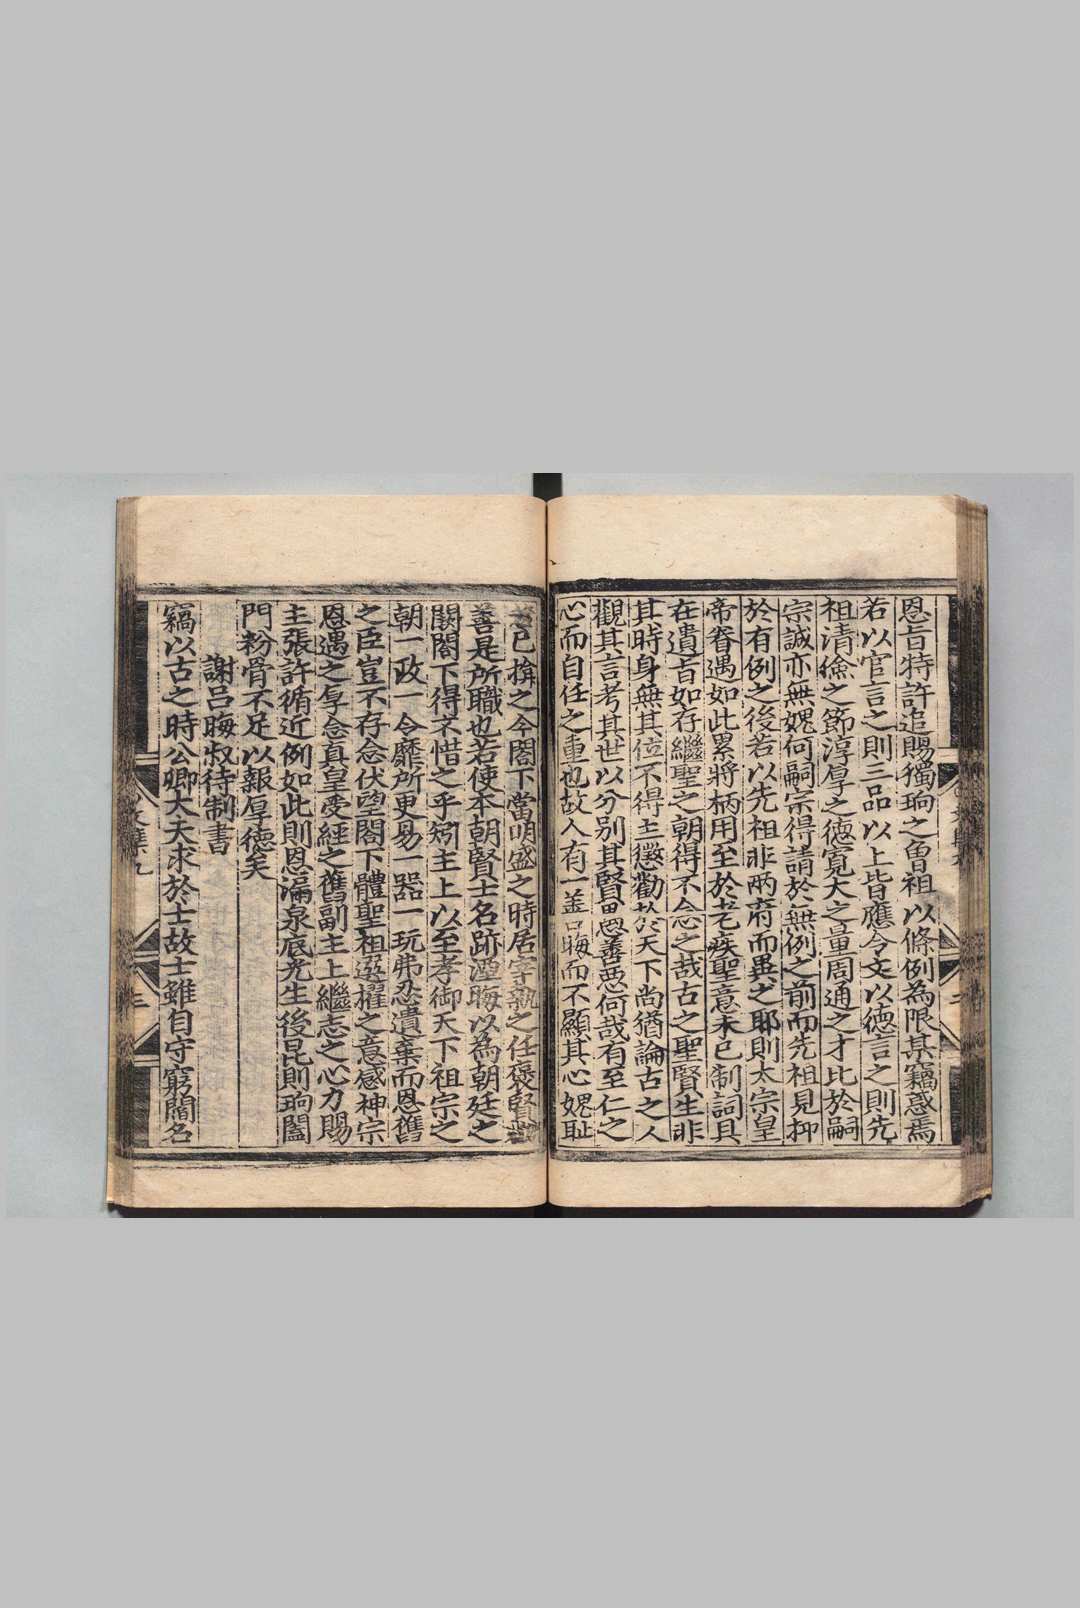 恩旨特許追賜獨珦之曾祖以條例為限某竊惑焉
若以官言之則三品以上皆應令文以德言之則先
祖清儉之節淳厚之德寬大之量周通之才比於嗣
宗誠亦無媿何嗣宗得請於無例之前而先祖見抑
於有例之後若以先祖非两府而異之耶則太宗皇
帝眷遇如此累將柄用至於老疾聖意未已制詞具
在遺旨如存繼聖之朝得不念之哉古之聖賢生非
其時身無其位不得主懲勸於天下尚猶論古之人
觀其言考其世以分别其賢愚善惡何哉有至仁之
心而自任之重也故人有一善晦而不顯其心媿耻
若已揜之今閤下當明盛之時居宰執之任褒賢
善是所職也若使本朝賢士名跡湮晦以為朝廷之
闕閤下得不惜之乎矧主上以至孝御天下祖宗之
朝一政一令靡所更易一器一玩弗忍遺棄而恩舊
之臣豈不存念伏望閤下體聖祖選擢之意感神宗
恩遇之厚念真皇受經之舊副主上繼志之心力賜
主張許循近例如此則恩漏泉底光生後昆則珦闔
門粉骨不足以報厚德矣
謝吕晦叔待制書
竊以古之時公卿大夫求於士故士雖自守窮閻名
文集九
三